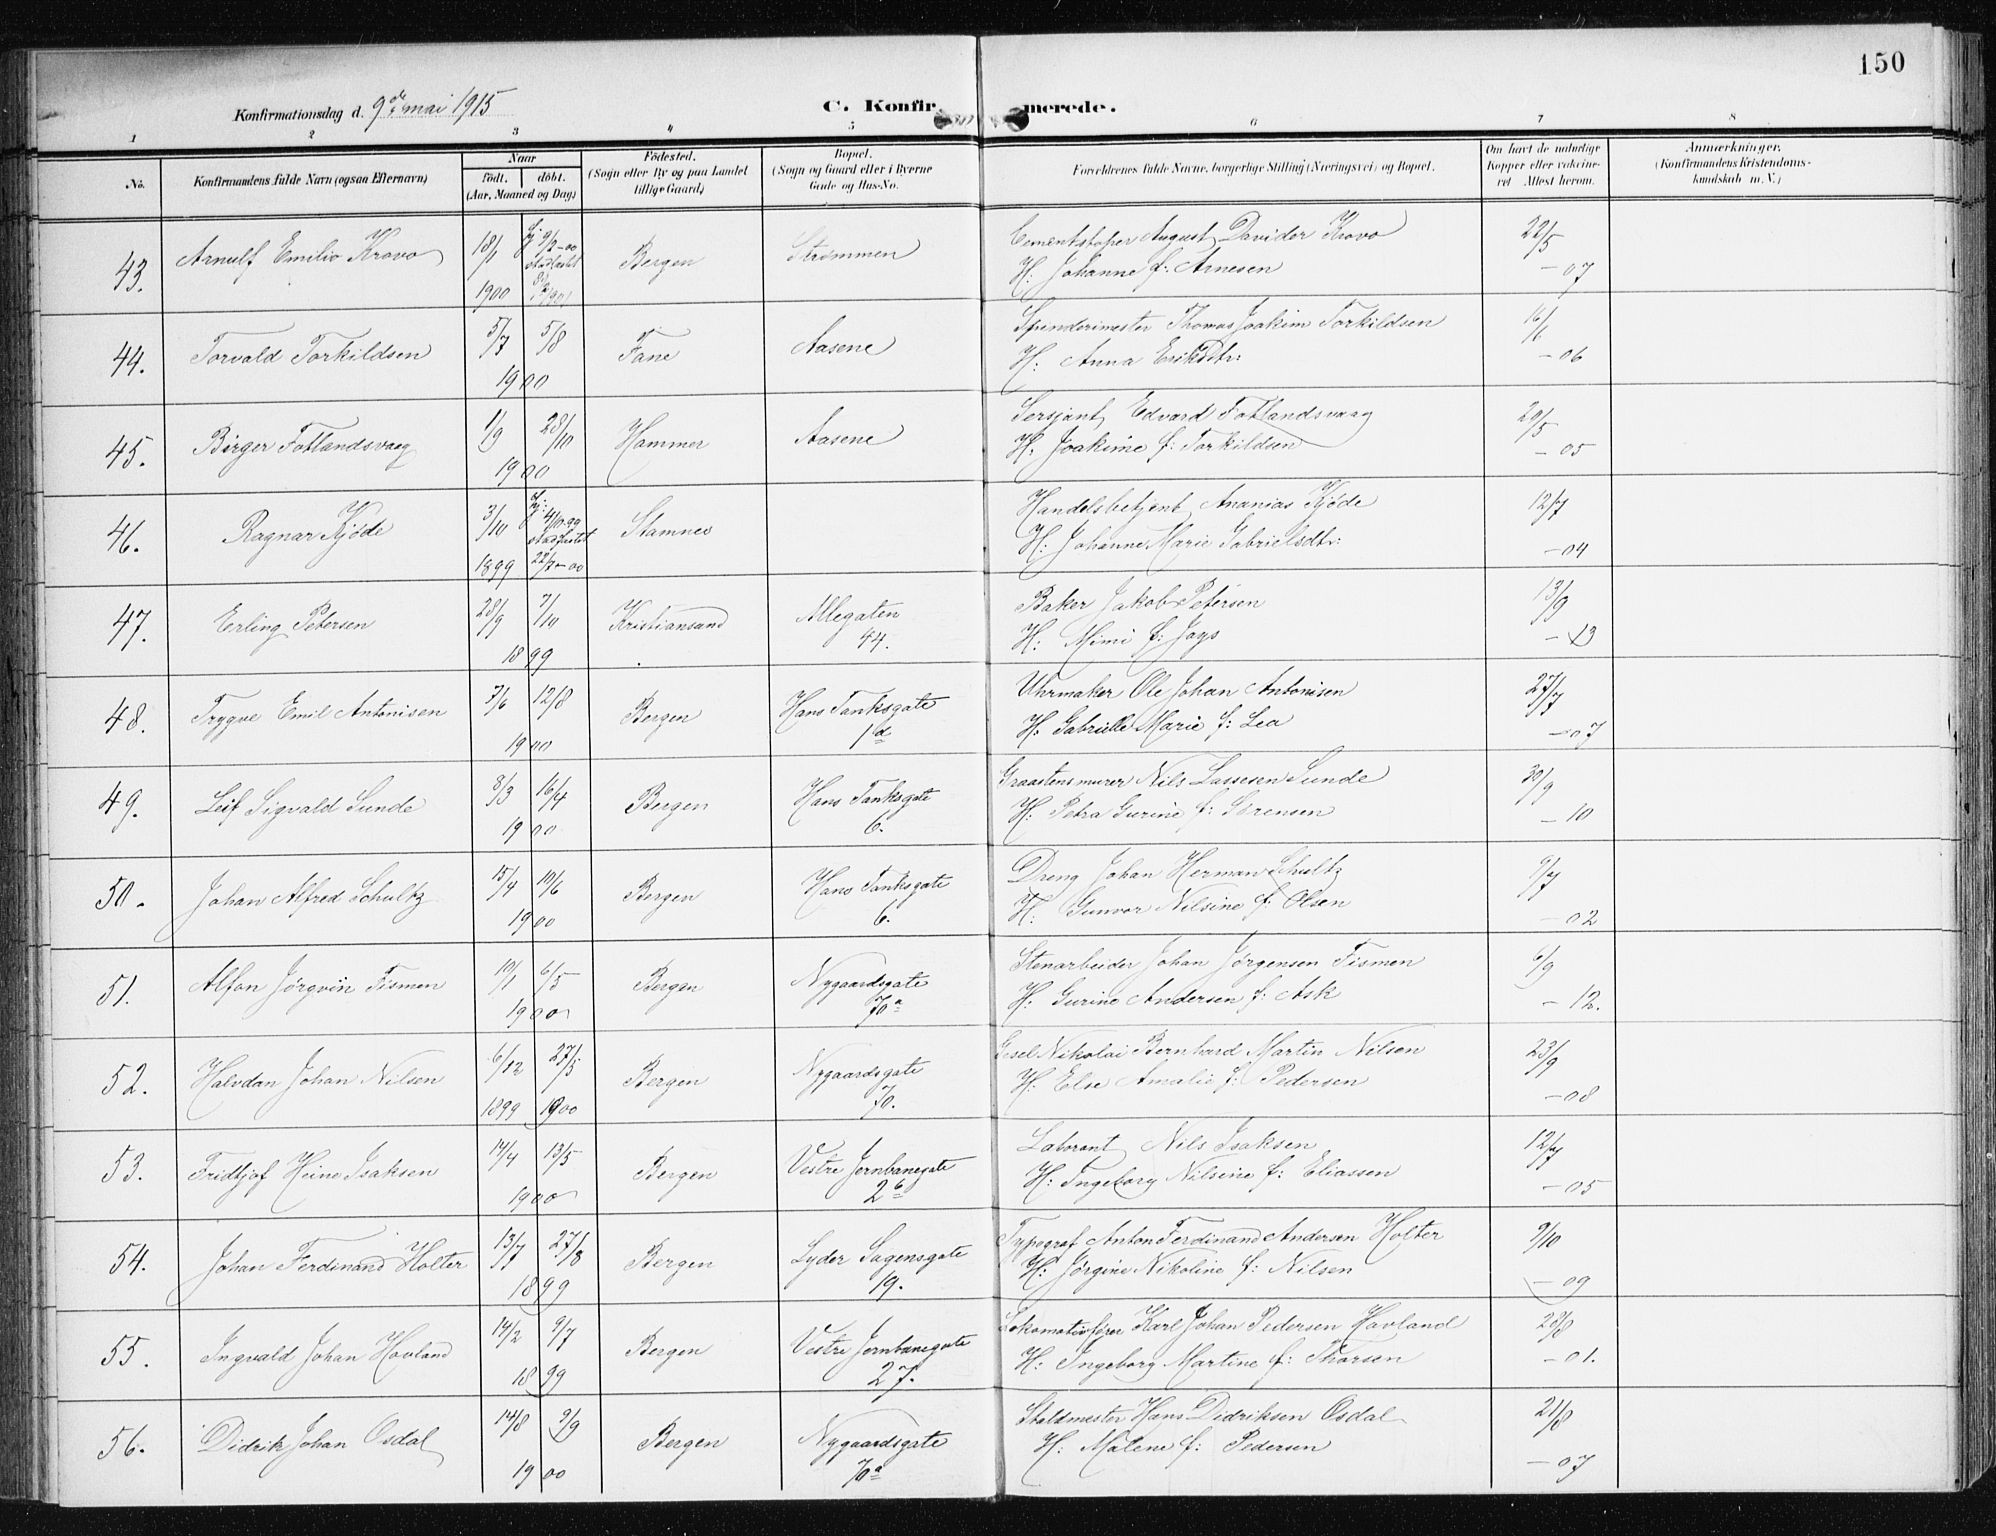 150
Konfirmationsdag d. 9de mai 1915
C. Konfirmerede.
1 2 3 4 5 6 7 8
No.
Konfirmandens fulde Navn (ogsaa Efternavn)
Naar
født. døbt.
(Aar, Maaned og Dag)
Fødested.
(Sogn eller By og paa Landet
tillige Gaard)
Bopæl.
(Sogn og Gaard eller i Byerne
Gade og Hus-No.
Forældrenes fulde Navne, borgerlige Stilling (Næringsvei) og Bopæl.
Om havt de naturlige
Kopper eller vakcine-
ret Attest herom.
Anmærkninger.
(Konfirmandens Kristendoms-
kundskab m. V.)
43. Arnulf Emilio Krovo 18/1 1900 9/2-00 Stadfæstet Bergen Strømmen
Cementstøper August Davider Krovo 22/5
H: Johanne f: Arnesen -07
44. Torvald Torkildsen 5/7 5/8 1900 Fane Aasene
Spinderimester Thomas Joakim Torkildsen 16/6
H: Anna Eriksdtr: -06
45. Birger Fotlandsvaag 1/9 28/10 1900 Hammer Aasene
Sersjant Edvard Fotlandsvaag 29/5
H: Joakime f: Torkildsen -05
46. Ragnar Kjøde 3/10 1899 4/10 99 Stadfæstet 22/7-00 Stamnes
Handelsbetjent Ananias Kjøde 12/7
H: Johanne Marie Gabrielsdtr: -04
47. Erling Petersen 28/9 7/10 1899 Kristiansand Allegaten 44.
Baker Jakob Petersen 13/9
H: Mimi f: Jays -13
48. Trygve Emil Antonisen 7/6 12/8 1900 Bergen Hans Tanksgate 1d
Uhrmaker Ole Johan Antonisen 27/7
H: Gabrielle Marie f: Lea -07
49. Leif Sigvald Sunde 8/3 16/4 1900 Bergen Hans Tanksgate 6.
Graastensmurer Nils Lassesen Sunde 30/9
H: Petra Gurine f: Sørensen -10
50. Johan Alfred Schultz 15/4 10/6 1900 Bergen Hans Tanksgate 6.
Dreng Johan Herman Schultz 9/7
H: Gunvor Nilsine f: Olsen -02
51. Alfon Jørgvin Fismen 10/1 6/5 1900 Bergen Nygaardsgate 70a
Stenarbeider Johan Jørgensen Fismen 6/9
H: Gurine Andersen f: Ask -12.
52. Halvdan Johan Nilsen 6/12 1899 27/5 1900 Bergen Nygaardsgate 70.
Gesel Nikolai Bernhard Martin Nilsen 23/9
H: Else Amalie f: Pedersen -08
53. Fridtjof Heine Isaksen 14/4 13/5 1900 Bergen Vestre Jernbanegate 2b
Laborant Nils Isaksen 12/7
H: Ingeborg Nilsine f: Eliassen -05
54. Johan Ferdinand Holter 13/7 27/8 1899 Bergen Lyder Sagensgate 19.
Typograf Anton Ferdinand Andersen Holter 9/10
H: Jørgine Nikoline f: Nilsen -09
55. Ingvald Johan Hovland 14/2 9/7 1899 Bergen Vestre Jernbanegate 27.
Lokomotivfører Karl Johan Pedersen Havland 29/8
H: Ingeborg Martine f: Thorsen -01.
56. Didrik Johan Osdal 14/8 9/9 1900 Bergen Nygaardsgate 70a
Staldmester Hans Didriksen Osdal 21/8
H: Malene f: Pedersen -07